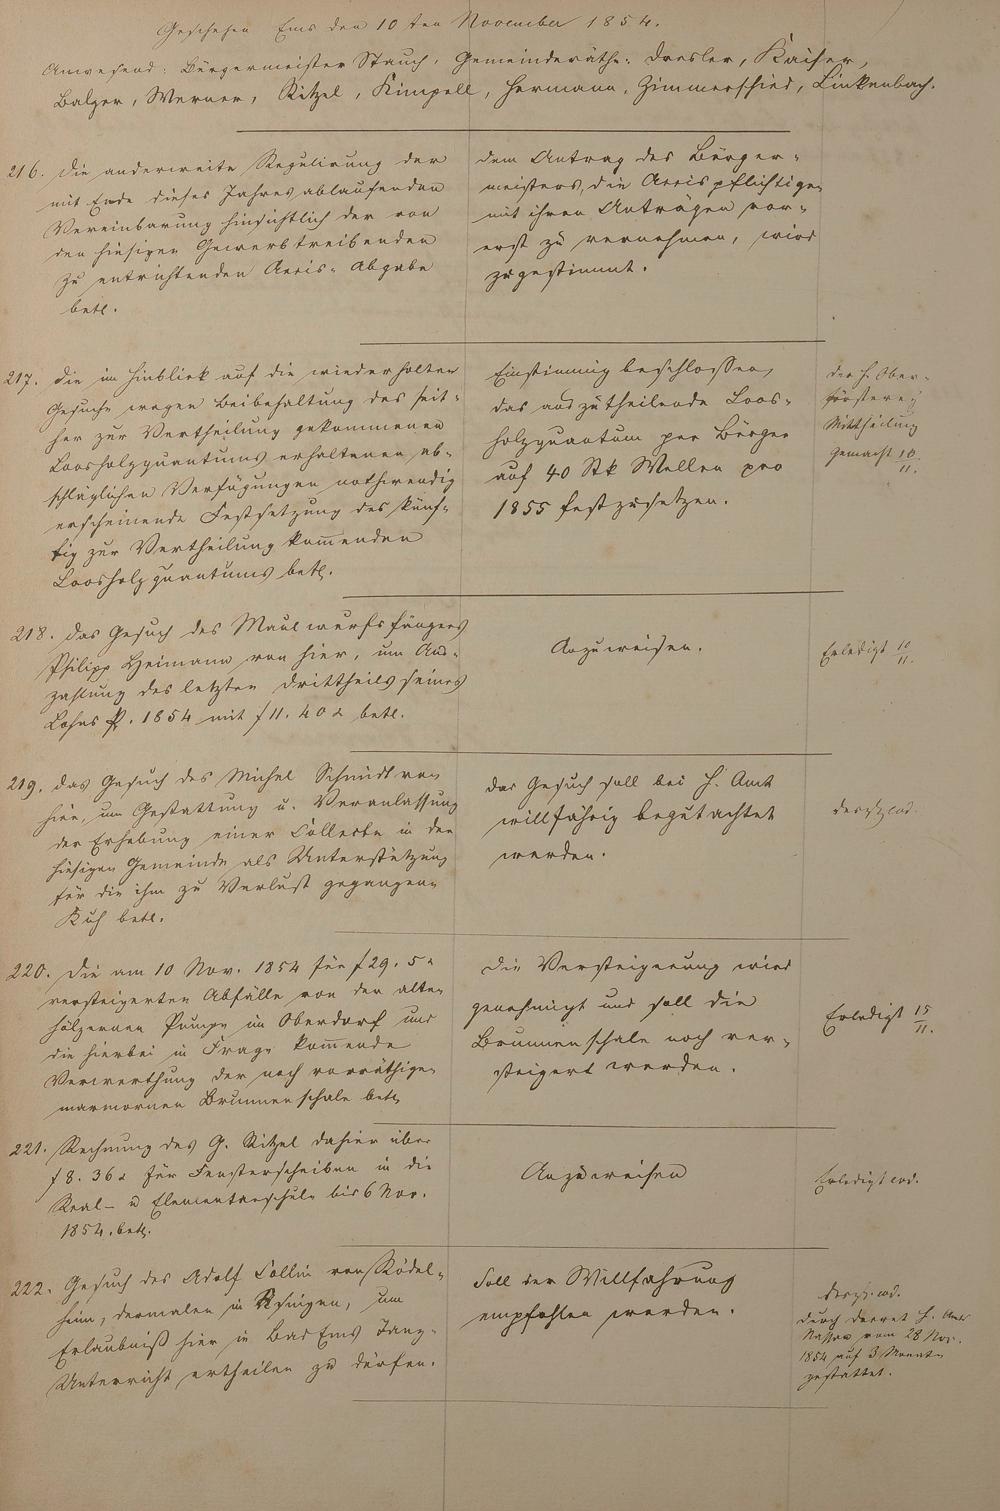 Geschehen Ems den 10ten November 1854.
Anwesend: Bürgermeister Stauch, Gemeinderäthe: Dresler, Kaiser,
Balzer, Werner, Ritzel, Kimpell, Hermann, Zimmerschied, Linkenbach.
216. Die anderweite Regulirung der
mit Ende dieses Jahres ablaufenden
Vereinbarung hinsichtlich der von
den hiesigen Gewerbtreibenden
zu entrichtenden Accis-Abgabe
betr.
dem Antrag des Bürger-
meisters, die Accispflichtigen
mit ihren Anträgen vor-
erst zu vernehmen, wird
zugestimmt.
217. Die im Hinblick auf die wiederholten
Gesuche wegen Beibehaltung des seit-
her zur Vertheilung gekommenen
Loosholzquantums erhaltenen ab-
schläglichen Verfügungen nothwendig
erscheinende Festsetzung des künf-
tig zur Vertheilung kom̅enden
Loosholzquantums betr.
Einstimmig beschlossen,
das auszutheilende Loos-
holzquantum per Bürger
auf 40 Stk Wellen pro
1855 festzusetzen.
der H. Ober-
försterei
Mittheilung
gemacht 10/11.
218. Das Gesuch des Maulwurfsfängers
Philipp Heimann von hier, um Aus-
zahlung des letzten Drittheils seines
Lohns p. 1854 mit f 11. 40 x betr.
Anzuweisen.
Erledigt 10/11.
219. Das Gesuch des Michel Schmidt von
hier, um Gestattung u. Veranlassung
der Erhebung einer Collecte in der
hiesigen Gemeinde als Unterstützung
für die ihm zu Verlust gegangene
Kuh betr.
Das Gesuch soll bei H. Amt
willfährig begutachtet
werden.
220. Die am 10 Nov. 1854 für f 29. 5 x
versteigerten Abfälle von der alten
hölzernen Pumpe im Oberdorf und
die hierbei in Frage kom̅ende
Verwerthung der noch vorräthigen
marmornen Brunnenschale betr.
Die Versteigerung wird
genehmigt und soll die
Brunnenschale noch ver-
steigert werden.
Erledigt 15/11.
221. Rechnung des G. Ritzel dahier über
f 8. 36 x für Fensterscheiben in die
Real- u Elementarschule bis 6 Nov.
1854. betr.
Anzuweisen
Erledigt eod.
222. Gesuch des Adolf Collin von Rödel-
heim, dermalen in Usingen, um
Erlaubniß hier in Bad Ems Tanz-
Unterricht ertheilen zu dürfen.
Soll der Willfahrung
empfohlen werden.
eod.
durch Decret H. Amts
Nassau vom 28 Nov.
1854 auf 3 Monate
gestattet.